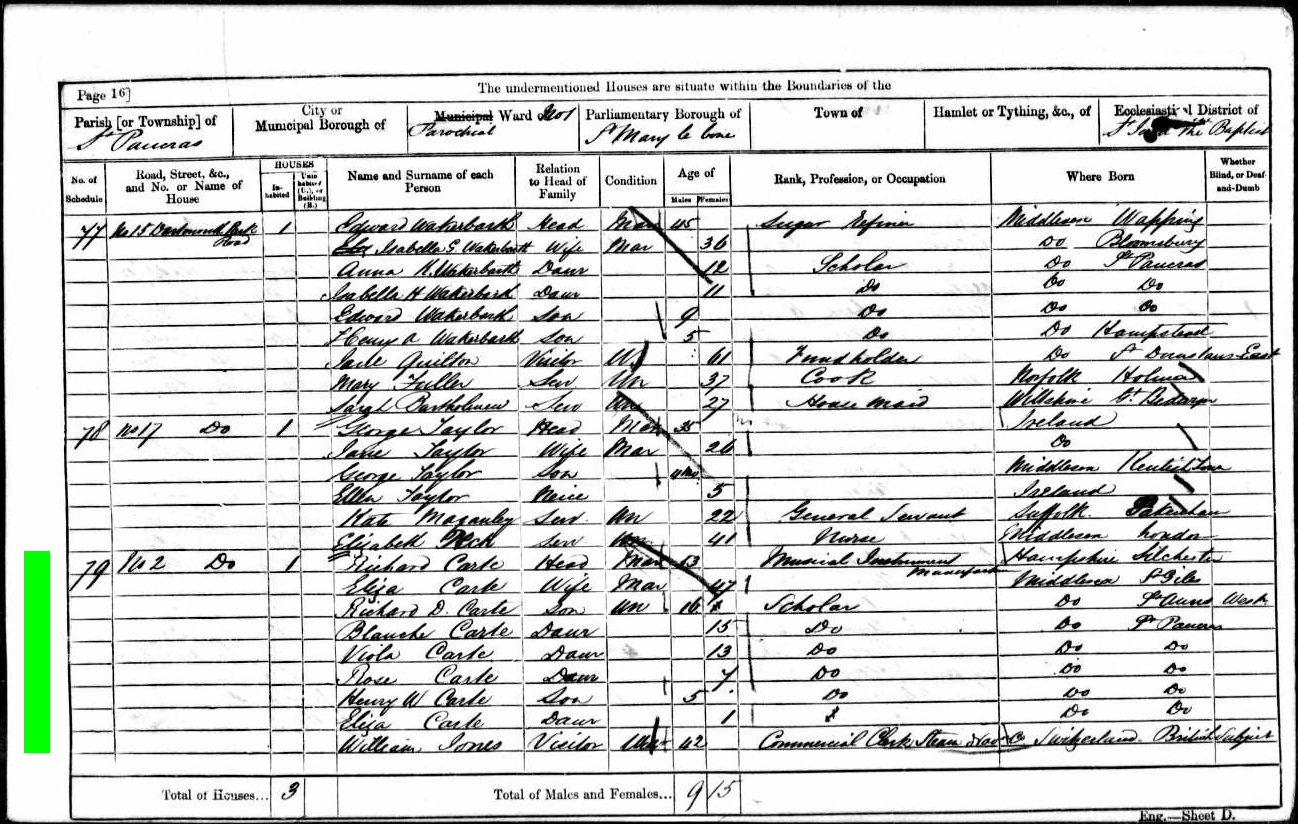 The undermentioned Houses are situate within the Boundaries of the
Page 16]
Parish [or Township] of
St Pancras
City or
Municipal Borough of
Municipal Ward of No 1
Parochial
Parliamentary Borough of
St Mary le bone
Town of
Hamlet or Tything, &c., of
Ecclesiastical District of
St John the Baptist
No. of Schedule
Road, Street, &c., and No. or Name of House
HOUSES
In-habited
Unin-habited (U.), or Building (B.)
Name and Surname of each Person
Relation to Head of Family
Condition
Age of
Males
Females
Rank, Profession, or Occupation
Where Born
Whether Blind, or Deaf-and-Dumb
77 No 15 Dartmouth Park Road 1 Edward Wakerbarth Head Mar 45 Sugar Refiner Middlesex Wapping
Isabella G. Wakerbarth Wife Mar 36 Do Bloomsbury
Anna H. Wakerbarth Daur 12 Scholar Do St Pancras
Isabella H Wakerbarth Daur 11 Do Do Do
Edward Wakerbarth Son 9 Do Do Do
Henry A Wakerbarth Son 5 Do Do Hampstead
Jane Quilton Visitor Un 61 Fundholder Do St Dunstans East
Mary Fuller Serv Un 37 Cook Norfolk
Sarah Bartholomew Serv Un 27 House Maid Wiltshire
78 No 17 Do 1 George Taylor Head Mar 35 Ireland
Jane Taylor Wife Mar 26 Do
George Taylor Son Middlesex Kentish Town
Ellen Taylor Neice 5 Ireland
Kate Macauley Serv Un 22 General Servant Suffolk Pakenham
Elizabeth Serv Un 41 Nurse Middlesex London
79 No 2 Do 1 Richard Carte Head Mar Musical Instrument Manufacturer Hampshire Silchester
Eliza Carte Wife Mar 47 Middlesex St Giles
Richard D. Carte Son Un 16 Scholar Do St Anns West
Blanche Carte Daur 15 Do Do St Pancras
Viola Carte Daur 13 Do Do Do
Rose Carte Daur 7 Do Do Do
Henry W Carte Son 5 Do Do Do
Eliza Carte Daur 1 Do Do
William Jones Visitor 42 Commercial Clerk Steam Switzerland British Subject
Total of Houses... 3
Total of Males and Females... 9 15
Eng.—Sheet D.